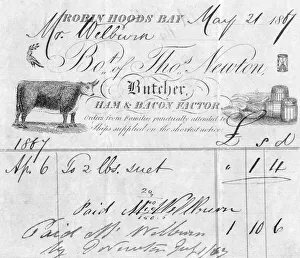 ROBIN HOODS BAY May 21 1867
Mr. Welburn
Bot. of Thos. Newton,
Butcher,
HAM & BACON FACTOR
Orders from Families punctually attended to
Ships supplied on the shortest notice
£ S D
1867
Ap 6 To 2 lbs. suet " 1 4
Paid Mr Welburn
Paid Mr. Welburn 1 10 6
by Newton